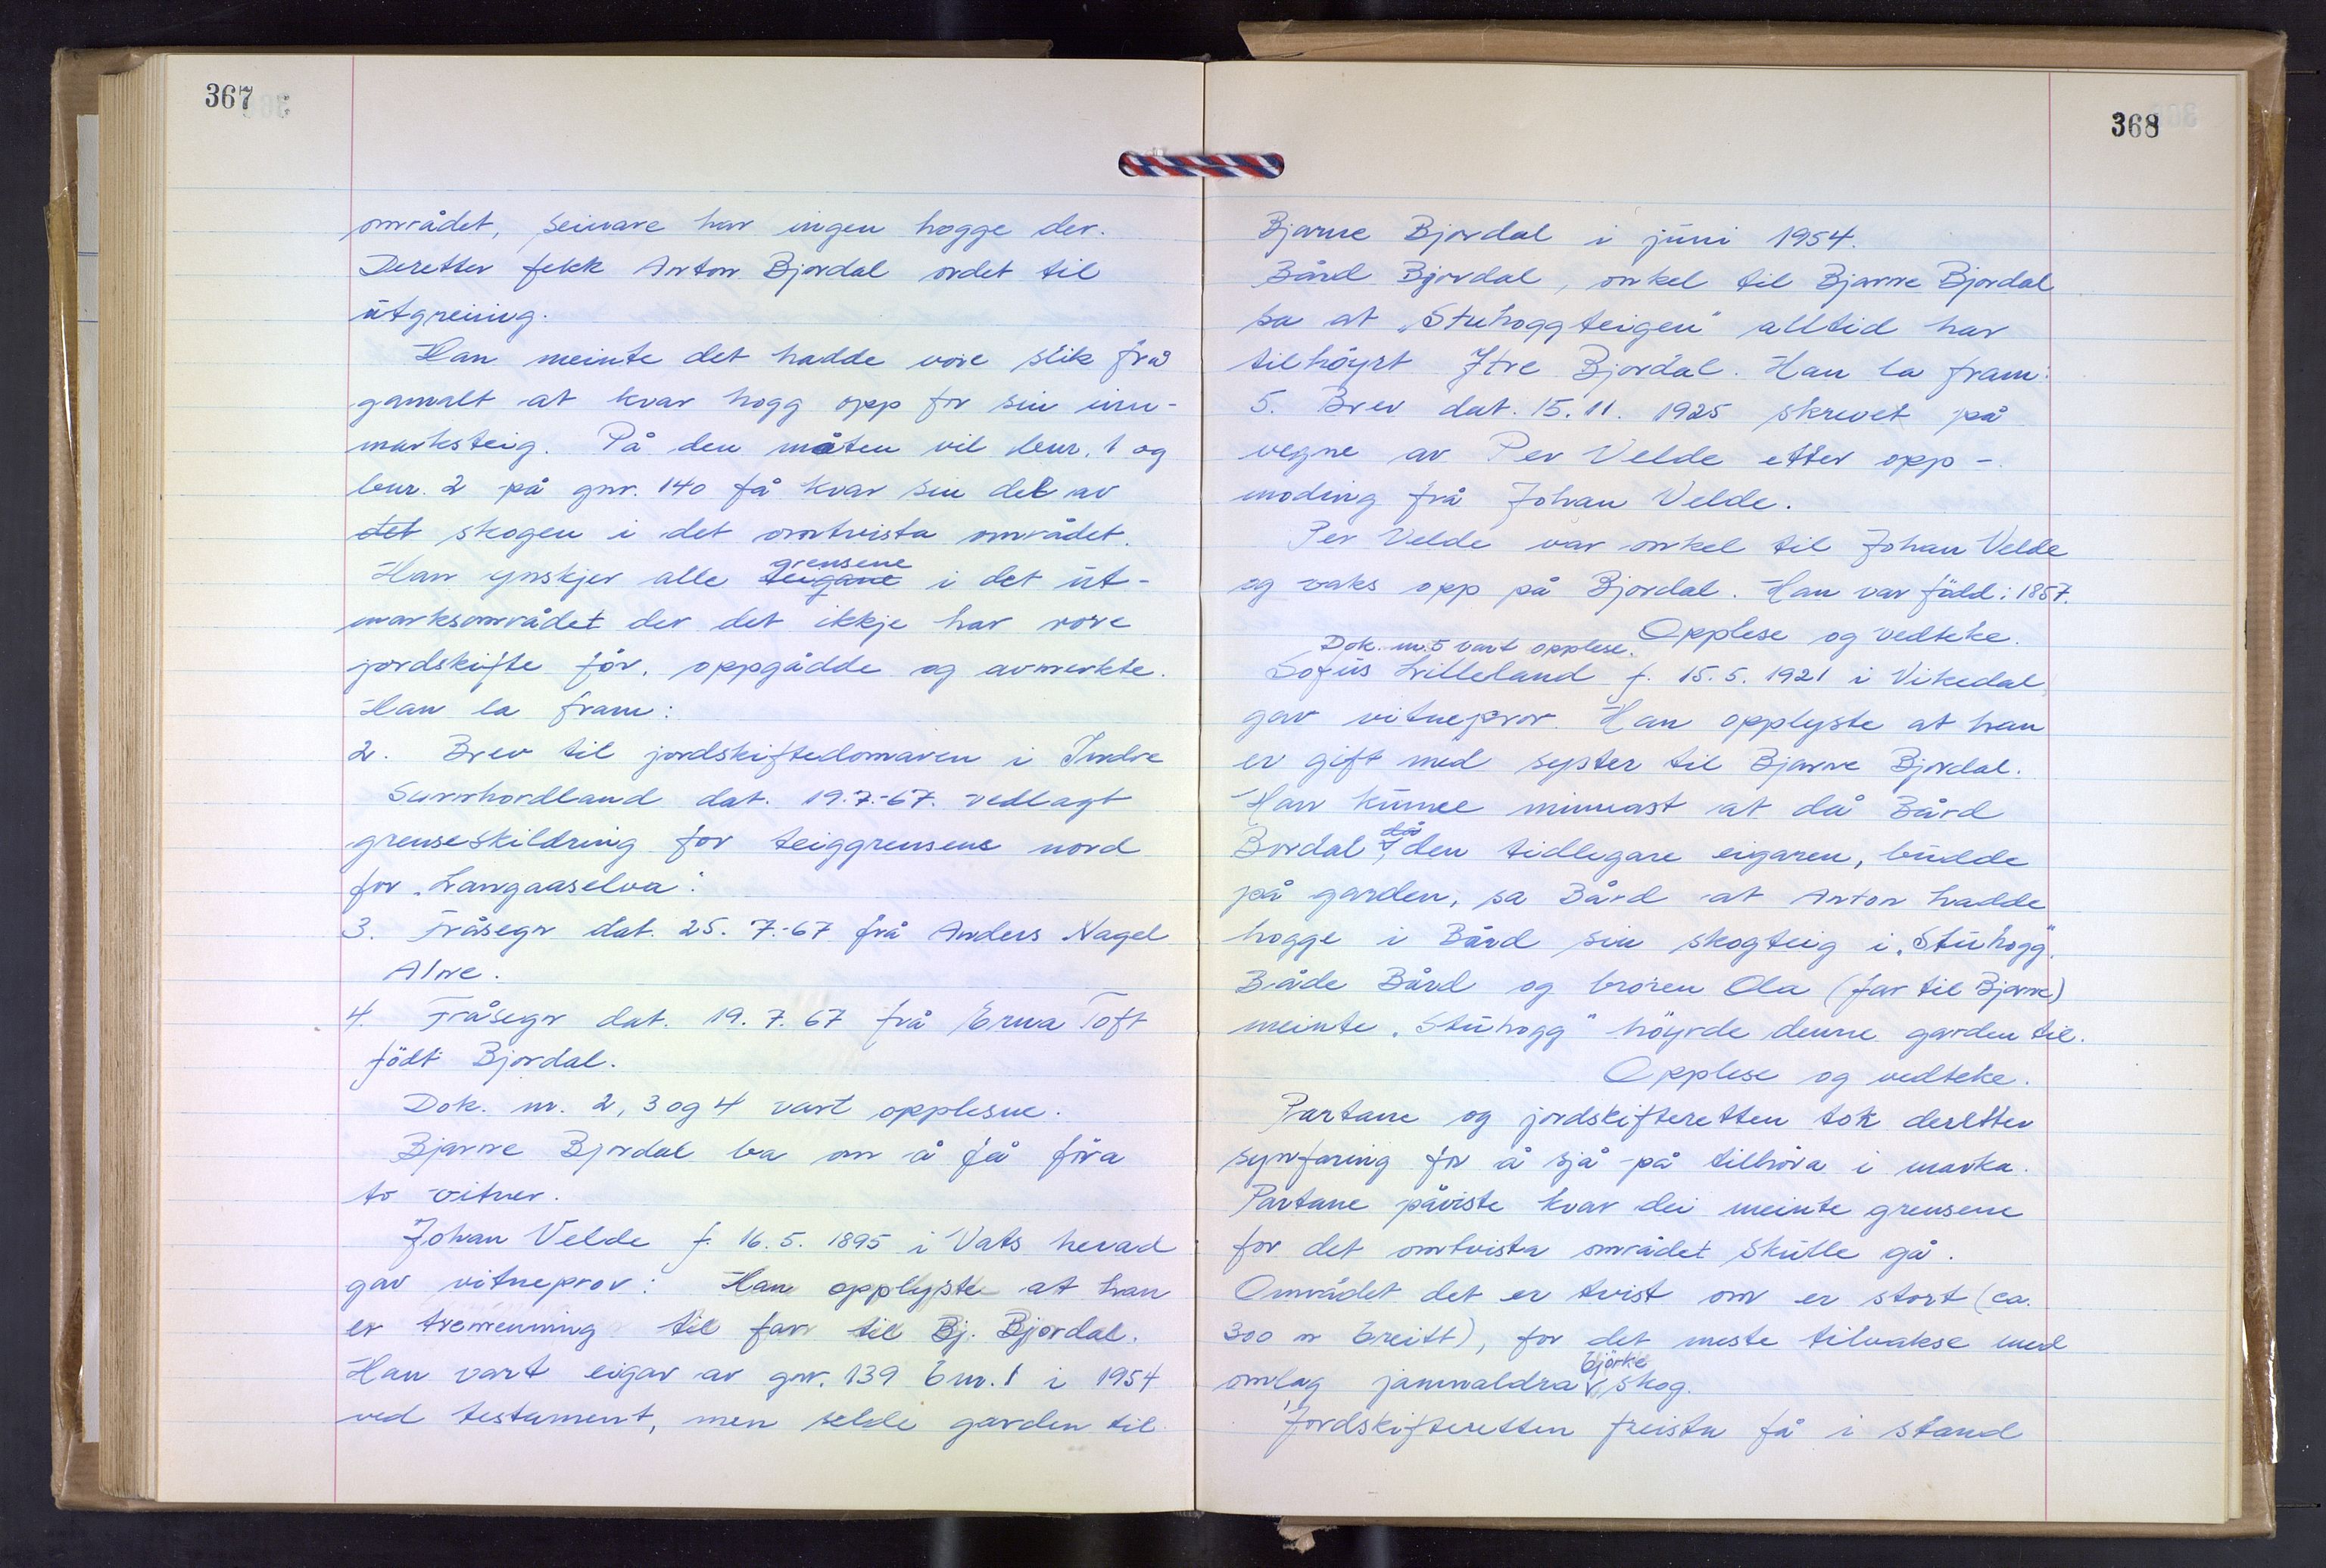 367
området, seinare har ingen hogge der.
Deretter fekk Anton Bjordal ordet til
utgreiing.
Han meinte det hadde vore slik frå
gamalt at kvar hogg opp for sin inn-
marksteig. På den måten vil bnr. 1 og
bnr. 2 på gnr. 140 få kvar sin del av
det skogen i det omtvista området.
grensene
Han ynskjer alle teigane i det ut-
marksområdet der det ikkje har vore
jordskifte för, oppgådde og avmerkte.
Han la fram:
2. Brev til jordskiftedomaren i Indre
Sunnhordland dat. 19.7.-67. vedlagt
grenseskildring for teiggrensene nord
for „Langaaselva".
3. Fråsegn dat. 25. 7.-67 frå Anders Nagel
Alne.
4. Fråsegn dat. 19. 7. 67 frå Erna Toft
födt Bjordal.
Dok. nr. 2, 3 og 4 vart opplesne.
Bjarne Bjordal ba om å få föra
to vitner.
Johan Velde f. 16. 5. 1895 i Vats herad
gav vitneprov: Han opplyste at han
er tremenning til far til Bj. Bjordal.
Han vart eigar av gnr. 139 bnr. 1 i 1954
ved testament, men selde garden til
368
Bjarne Bjordal i juni 1954.
Bård Bjordal, onkel til Bjarne Bjordal
sa at „Stuhoggteigen" alltid har
tilhöyrt Ytre Bjordal. Han la fram:
5. Brev dat. 15. 11. 1925 skrevet på
vegne av Per Velde etter opp-
moding frå Johan Velde.
Per Velde var onkel til Johan Velde
og vaks opp på Bjordal. Han var född i 1857.
Opplese og vedteke.
Dok. nr. 5 vart opplese.
Sofus Lilleland f. 15. 5. 1921 i Vikedal
gav vitneprov. Han opplyste at han
er gift med syster til Bjarne Bjordal.
Han kunne minnast at då Bård
då
Bordal, den tidlegare eigaren, budde
på garden, sa Bård at Anton hadde
hogge i Bård sin skogteig i „Stuhogg".
Både Bård og broren Ola (far til Bjarne)
meinte „Stuhogg" höyrde denne garden til.
Opplese og vedteke.
Partane og jordskifteretten tok deretter
synfaring for å sjå på tilhöva i marka.
Partane påviste kvar dei meinte grensene
for det omtvista området skulle gå.
Området det er tvist om er stort (ca.
300 m breitt), for det meste tilvakse med
björke
omlag jamnaldra skog.
Jordskifteretten freista få i stand